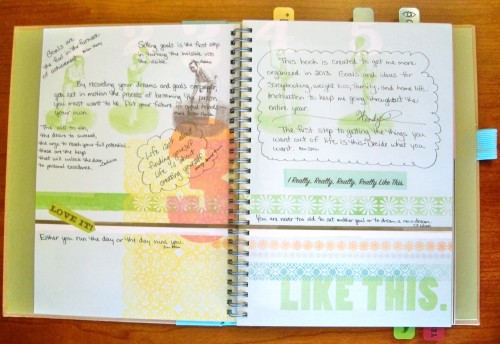 Goals are
the fuel in the furnace
of achievement.
Brian Tracy
Setting goals is the first step
in turning the invisible into
the visible.
By recording your dreams and goals on paper,
you set in motion the process of becoming the person
you most want to be. Put your future in good hands -
your own.
The will to win,
the desire to succeed,
the urge to reach your full potential
these are the keys
that will unlock the door
to personal excellence.
Life isn't about
finding yourself
Life is about
creating yourself
LOVE IT!
Either you run the day or the day runs you.
Jim Rohn
This book is created to get me more
organized in 2013. Goals and ideas for
Scrapbooking, weight loss, family, and home life.
Motivation to help me going throughout the
entire year.
The first step to getting the things you
want out of life is this: Decide what you
want.
I Really, Really, Really, Really Like This.
You are never too old to set another goal or to dream a new dream.
CS Lewis
LIKE THIS.